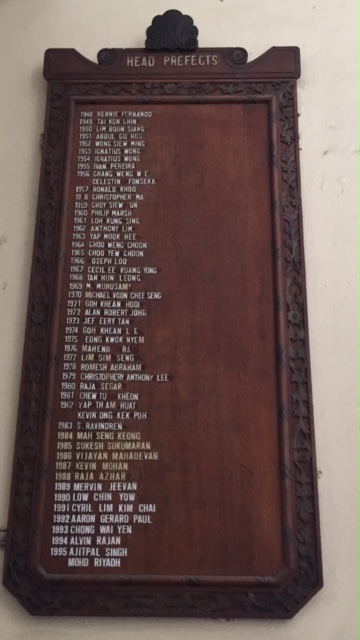 HEAD PREFECTS
1948 RENNIE FERNANDO
1949 TAI KON CHIN
1950 LIM BOON SIANG
1951 ABDUL GU HOS
1952 WONG SIEW MING
1953 IGNATIUS WONG
1954 IGNATIUS WONG
1955 IVAN PEREIRA
1956 CHANG WENG W E
CELESTIN FONSEKA
1957 RONALD KHOO
19 8 CHRISTOPHER MA
1959 CHOY SIEW UN
1960 PHILIP MARSH
1961 LOH KUNG SING
1962 ANTHONY LIM
1963 YAP MOOK HEE
1964 CHOO WENG CHOON
1965 CHOO YEW CHOON
1966 OSEPH LOO
1967 CECIL EE KUANG YONG
1968 TAN HUN LEONG
1969 M. MURUSAMY
1970 MICHAEL VOON CHEE SENG
1971 GOH KHEAN HOOI
1972 ALAN ROBERT JOHN
1973 JEF EERY TAN
1974 GOH KHEAN L E
1975 EONG KWOK NYEM
1976 MAHEND RA
1977 LIM SIM SENG
1978 ROMESH ABRAHAM
1979 CHRISTOPHERY ANTHONY LEE
1980 RAJA SEGAR
1981 CHEW TU KHEON
1982 YAP THAM HUAT
KEVIN ONG KEK POH
1983 S. RAVINDREN
1984 MAH SENG KEONG
1985 SUKESH SUKUMARAN
1986 VIJAYAN MAHADEVAN
1987 KEVIN MOHAN
1988 RAJA AZHAR
1989 MERVIN JEEVAN
1990 LOW CHIN YOW
1991 CYRIL LIM KIM CHAI
1992 AARON GERARD PAUL
1993 CHONG WAI YEN
1994 ALVIN RAJAN
1995 AJITPAL SINGH
MOHD RIYADH